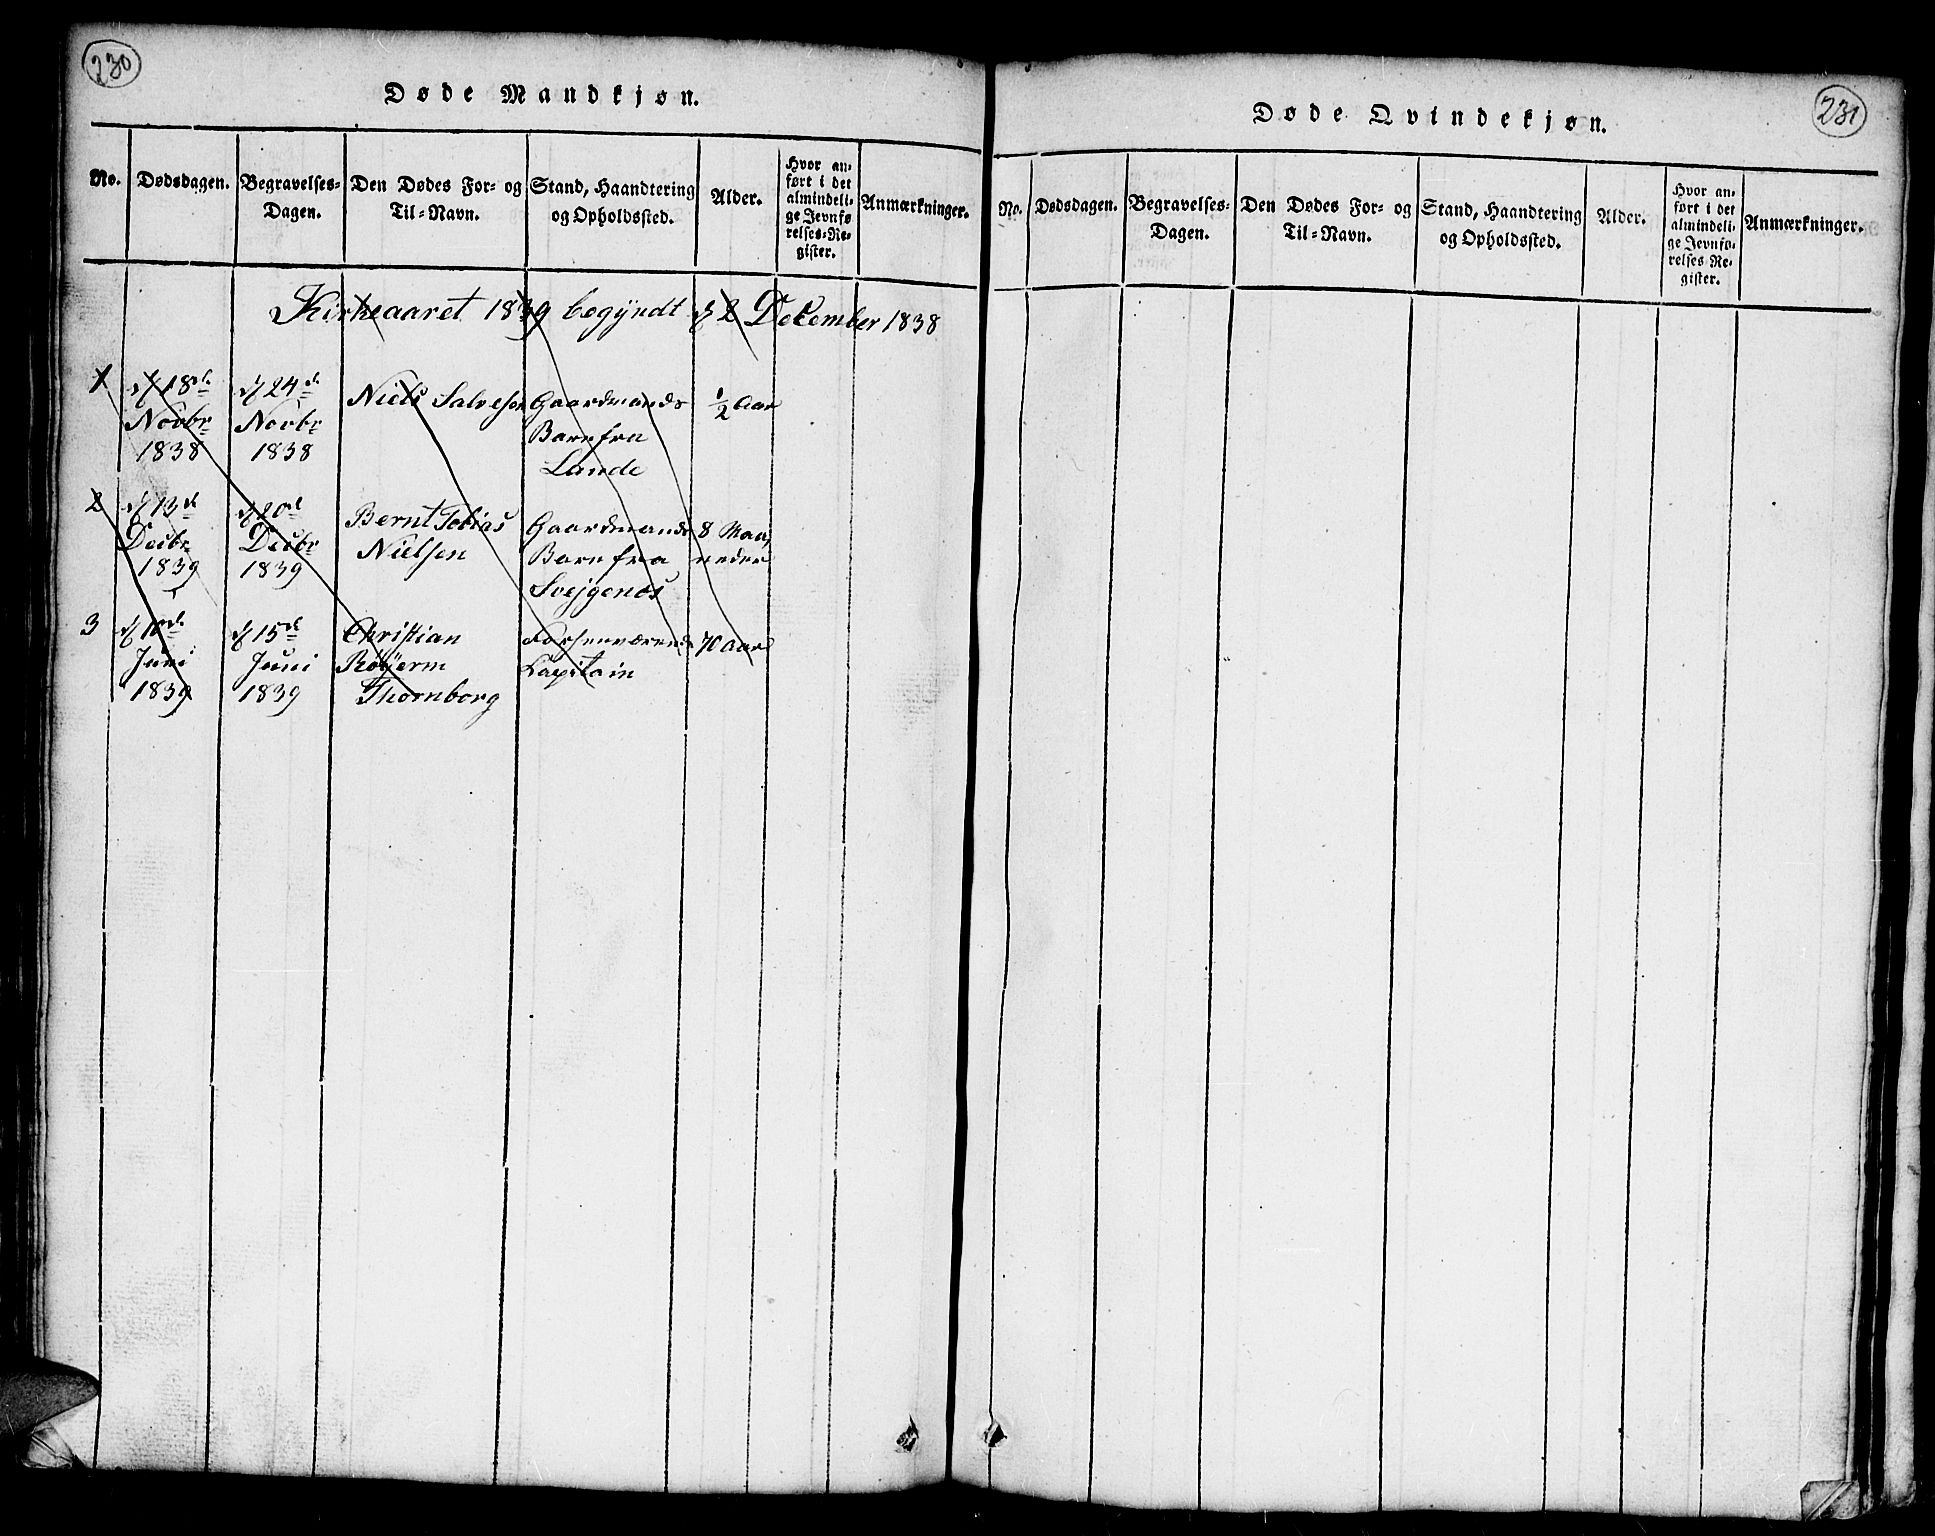 230
Døde Mandkjøn.
No. Dødsdagen. Begravelses-Dagen. Den Dødes For- og Til-Navn. Stand, Haandtering og Opholdssted. Alder. Hvor anført i det almindelige Jevnførelses-Register. Anmærkninger.
Kirkeaaret 1839 begyndt d 2 December 1838
1 d 18de Novbr 1838 d 24de Novbr 1838 Niels Salvesen Gaardmands Barn fra Lande ½ Aar
2 d 13de Decbr 1839 d 20de Decbr 1839 Bernt Tobias Nielsen Gaardmands Barn fra 8 Maaneder
3 d 10de Juni 1839 d 15de Juni 1839 Christian Thornborg Capitain 70 Aar
231
Døde Qvindekjøn.
No. Dødsdagen. Begravelses-Dagen. Den Dødes For- og Til-Navn. Stand, Haandtering og Opholdssted. Alder. Hvor anført i det almindelige Jevnførelses-Register. Anmærkninger.